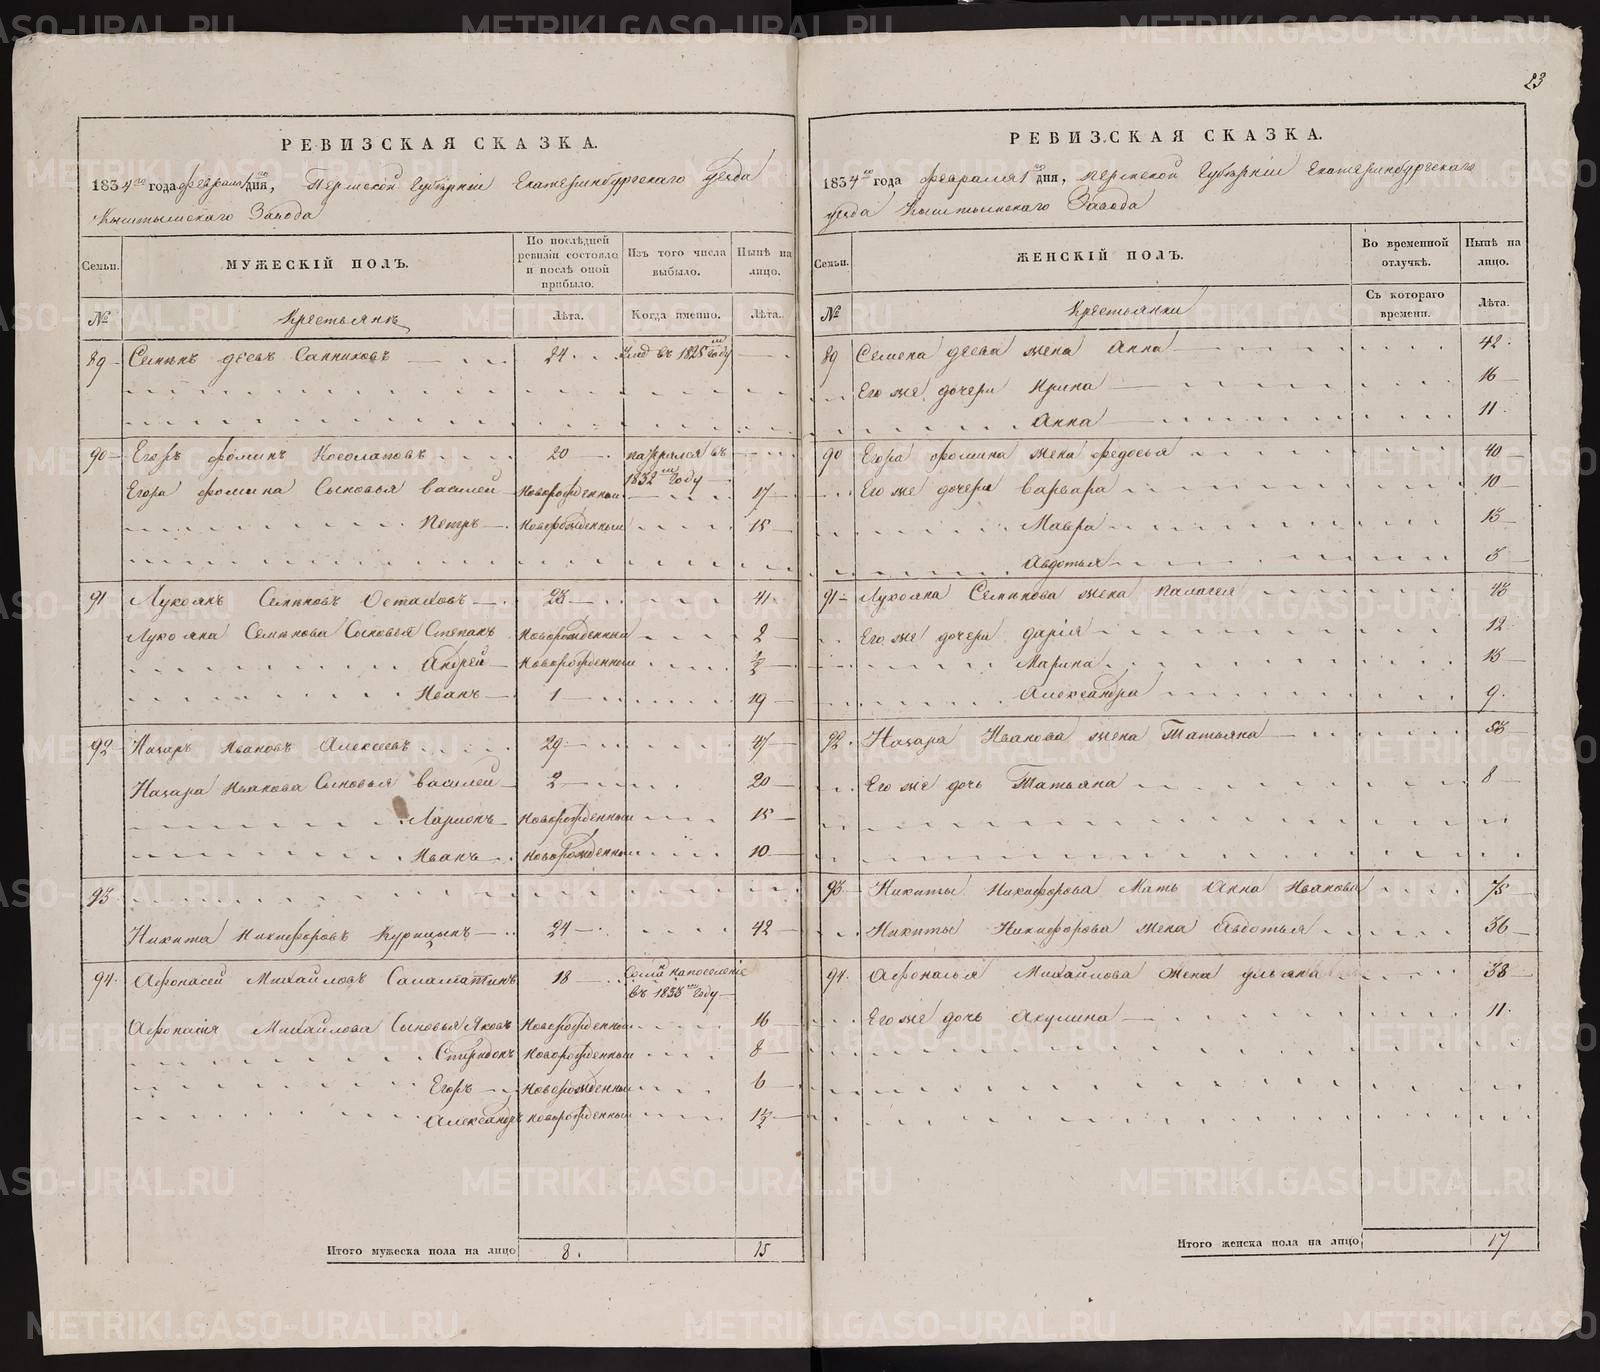 23
РЕВИЗСКАЯ СКАЗКА.
1834го года февраля 1го дня, Пермской Губерніи Екатеринбургскаго уезда
Кыштымскаго Завода
Семьи. МУЖЕСКІЙ ПОЛЪ. По послѣдней ревизіи состояло и послѣ оной прибыло. Изъ того числа выбыло. Нынѣ на лицо.
№ Крестьянъ Лѣта. Когда именно. Лѣта.
89 Семенъ деевъ Санниковъ 24 Умер въ 1828м году
90 Егоръ фоминъ Косолаповъ 20 въ 1832м году
Егора фомина Сыновья василей Новорожденный 17
Петръ Новорожденный 15
91 Лукоянъ Семеновъ Остаховъ 23 41
Лукояна Семенова Сыновья Степанъ Новорожденный 2
Андрей Новорожденный 1/2
Иванъ 1 19
92 Назаръ Ивановъ Алексеевъ 29 47
Назара Иванова Сыновья василей 2 20
Ларионъ Новорожденный 15
Иванъ Новорожденный 10
93
Никита Никифоровъ Курицынъ 24 42
94 Афонасей Михайловъ Саламатинъ 18 на поселеніе въ 1833м году
Афонасія Михайлова Сыновья Яковъ Новорожденный 16
Спиридонъ Новорожденный 8
Егоръ Новорожденный 6
Александръ новорожденный 1 1/2
Итого мужеска пола на лицо 8. 15
РЕВИЗСКАЯ СКАЗКА.
1834го года февраля 1го дня, Пермской Губерніи Екатеринбургскаго
уезда Кыштымскаго Завода
Семьи. ЖЕНСКІЙ ПОЛЪ. Во временной отлучкѣ. Нынѣ на лицо.
№ Крестьянки Съ котораго времени. Лѣта.
89 Семена деева жена Анна 42
Его же дочери Ирина 16
Анна 11
90 Егора фомина жена федосья 40
Его же дочери варвара 10
Мавра 13
Авдотья 3
91 Лукояна Семенова жена палагея 43
Его же дочери дарія 12
Марина 15
Александра 9
92 Назара Иванова жена Татьяна 53
Его же дочь Татьяна 8
93 Никиты Никифорова Мать Анна Иванова 75
Никиты Никифорова жена Авдотья 36
94 Афонасья Михайлова жена ульяна 38
Его же дочь Акулина 11
Итого женска пола на лицо 17
METRIKI.GASO-URAL.RU